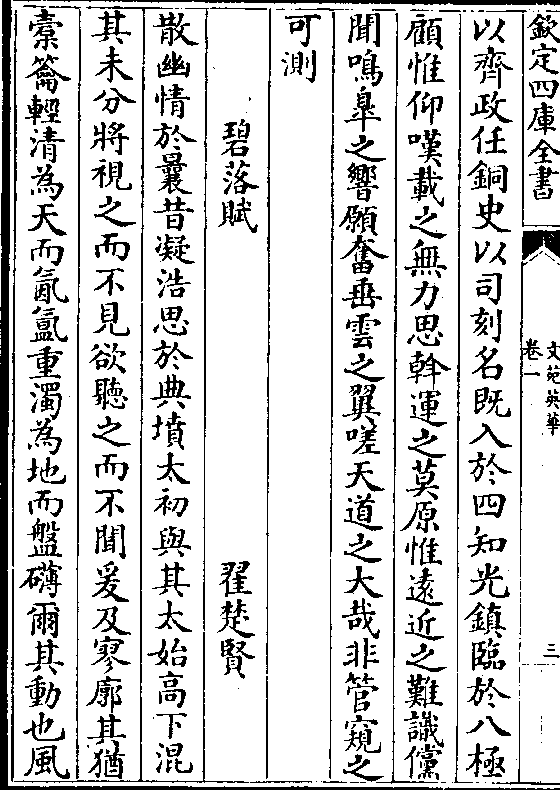 欽定四庫全書
文苑英華
卷一
三
以齊政任銅史以司刻名既入於四知光鎮臨於八極
顧惟仰嘆載之無力思斡運之莫原惟遠近之難識儻
聞鳴臯之響願奮垂雲之翼嗟天道之大哉非管窺之
可測
碧落賦
翟楚賢
散幽情於曩昔凝浩思於典墳太初與其太始高下混
其未分將視之而不見欲聽之而不聞爰及寥廓其猶
槖籥輕清為天而氤氲重濁為地而盤礴爾其動也風